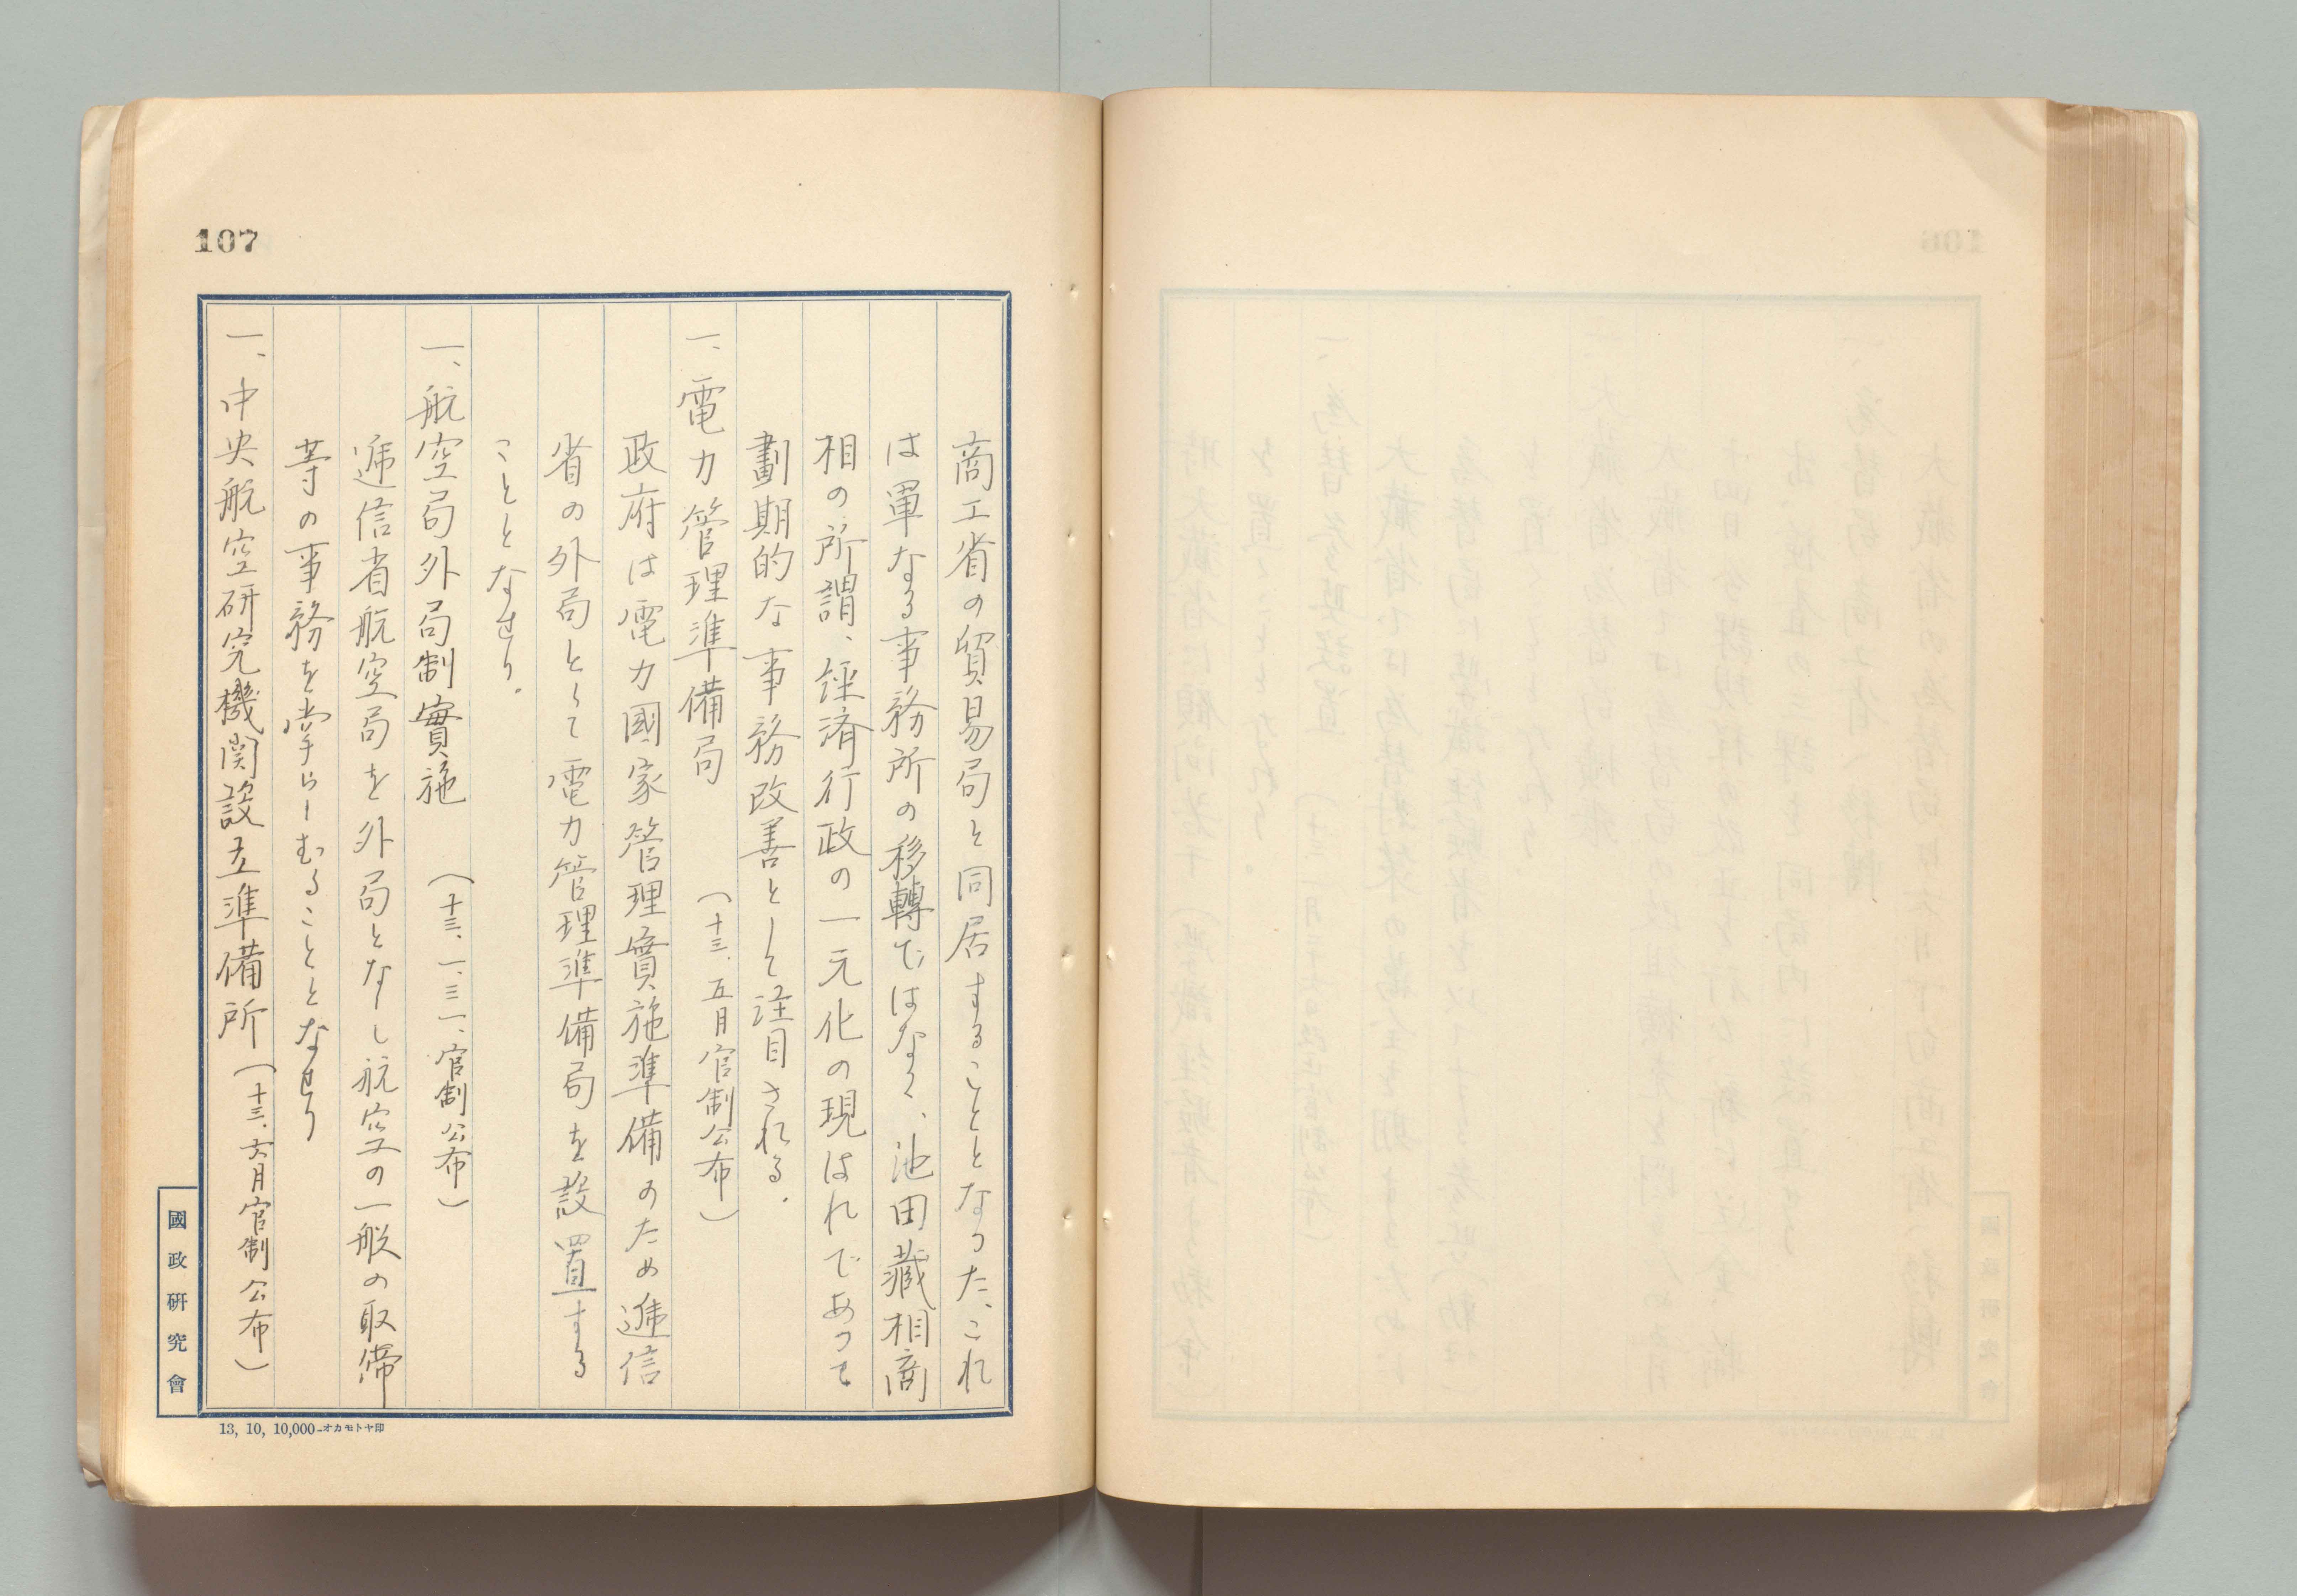 107
商工省の貿易局と同居することとなつた、これ
は單なる事務所の移轉ではなく、池田藏相商
相の所謂、経済行政の一元化の現はれであつて
劃期的な事務改善として注目される.
一、電力管理準備局（十三、五月官制公布）
政府は電力國家管理實施準備のため逓信
省の外局として電力管理準備局を設置する
こととなせり.
一、航空局外局制實施（十三、一、三一、官制公布）
逓信省航空局を外局となし航空の一般の取締
等の事務を掌らしむることとなせり
一、中央航空研究機関設立準備所（十三、六月官制公布）
國政研究會
13, 10, 10,000—オカモトヤ印